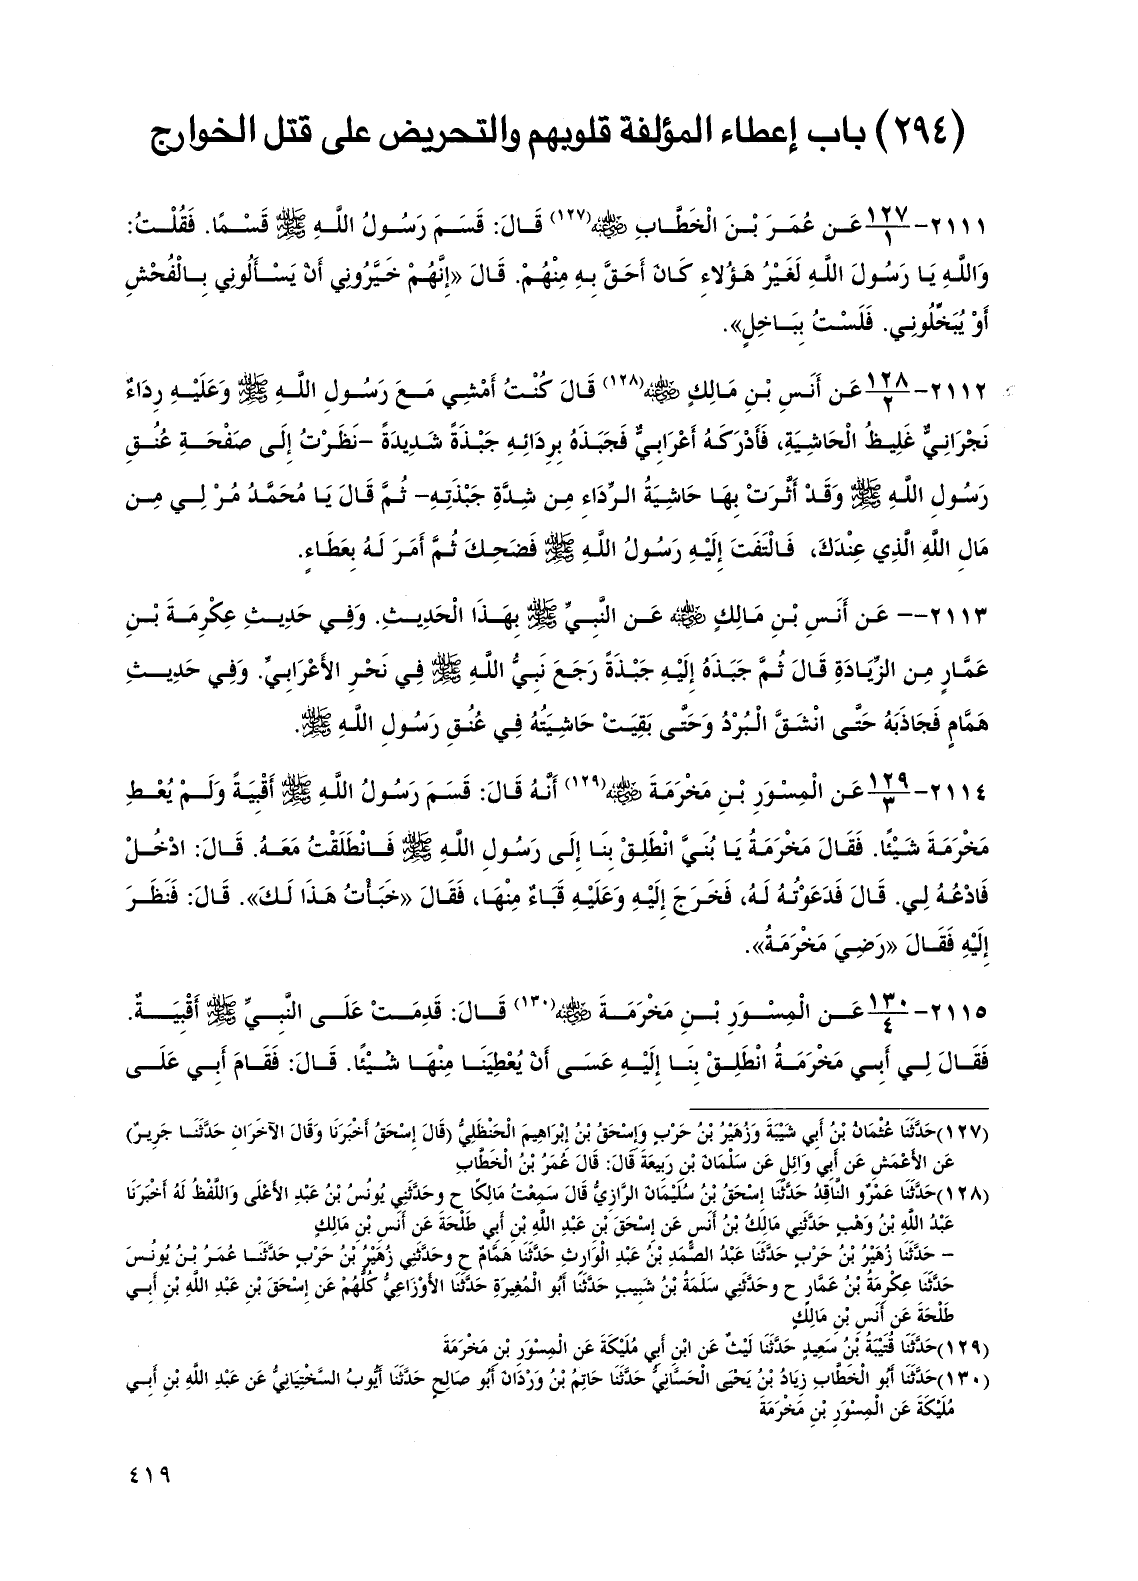 (٢٩٤) باب إعطاء المؤلفة قلوبهم والتحريض على قتل الخوارج
٢١١١- ١٢٧/١ عَن عُمَرَ بْنَ الْخَطَّابِ ﵁(١٢٧) قَالَ: قَسَمَ رَسُولُ اللَّهِ ﷺ قَسْمًا. فَقُلْتُ:
وَاللَّهِ يَا رَسُولَ اللَّهِ لَغَيْرُ هَؤُلاءِ كَانَ أَحَقَّ بِهِ مِنْهُمْ. قَالَ «إِنَّهُمْ خَيَّرُونِي أَنْ يَسْأَلُونِي بِالْفُحْشِ
أَوْ يُبَخِّلُونِي. فَلَسْتُ بِبَاخِلٍ».
٢١١٢- ١٢٨/٢ عَن أَنَسِ بْنِ مَالِكٍ ﵁(١٢٨) قَالَ كُنْتُ أَمْشِي مَعَ رَسُولِ اللَّهِ ﷺ وَعَلَيْهِ رِدَاءٌ
نَجْرَانِيٌّ غَلِيظُ الْحَاشِيَةِ، فَأَدْرَكَهُ أَعْرَابِيٌّ فَجَبَذَهُ بِرِدَائِهِ جَبْذَةً شَدِيدَةً -نَظَرْتُ إِلَى صَفْحَةِ عُنُقِ
رَسُولِ اللَّهِ ﷺ وَقَدْ أَثَّرَتْ بِهَا حَاشِيَةُ الرِّدَاءِ مِن شِدَّةِ جَبْذَتِهِ- ثُمَّ قَالَ يَا مُحَمَّدُ مُرْ لِي مِن
مَالِ اللَّهِ الَّذِي عِنْدَكَ، فَالْتَفَتَ إِلَيْهِ رَسُولُ اللَّهِ ﷺ فَضَحِكَ ثُمَّ أَمَرَ لَهُ بِعَطَاءٍ.
٢١١٣-- عَن أَنَسِ بْنِ مَالِكٍ ﵁ عَن النَّبِيِّ ﷺ بِهَذَا الْحَدِيثِ. وَفِي حَدِيثِ عِكْرِمَةَ بْنِ
عَمَّارٍ مِن الزِّيَادَةِ قَالَ ثُمَّ جَبَذَهُ إِلَيْهِ جَبْذَةً رَجَعَ نَبِيُّ اللَّهِ ﷺ فِي نَحْرِ الأَعْرَابِيِّ. وَفِي حَدِيثِ
هَمَّامٍ فَجَاذَبَهُ حَتَّى انْشَقَّ الْبُرْدُ وَحَتَّى بَقِيَتْ حَاشِيَتُهُ فِي عُنُقِ رَسُولِ اللَّهِ ﷺ.
٢١١٤- ١٢٩/٣ عَن الْمِسْوَرِ بْنِ مَخْرَمَةَ ﵁(١٢٩) أَنَّهُ قَالَ: قَسَمَ رَسُولُ اللَّهِ ﷺ أَقْبِيَةً وَلَمْ يُعْطِ
مَخْرَمَةَ شَيْئًا. فَقَالَ مَخْرَمَةُ يَا بُنَيَّ انْطَلِقْ بِنَا إِلَى رَسُولِ اللَّهِ ﷺ فَانْطَلَقْتُ مَعَهُ. قَالَ: ادْخُلْ
فَادْعُهُ لِي. قَالَ فَدَعَوْتُهُ لَهُ، فَخَرَجَ إِلَيْهِ وَعَلَيْهِ قَبَاءٌ مِنْهَا، فَقَالَ «خَبَأْتُ هَذَا لَكَ». قَالَ: فَنَظَرَ
إِلَيْهِ فَقَالَ «رَضِيَ مَخْرَمَةُ».
٢١١٥- ١٣٠/٤ عَن الْمِسْوَرِ بْنِ مَخْرَمَةَ ﵁(١٣٠) قَالَ: قَدِمَتْ عَلَى النَّبِيِّ ﷺ أَقْبِيَةٌ.
فَقَالَ لِي أَبِي مَخْرَمَةُ انْطَلِقْ بِنَا إِلَيْهِ عَسَى أَنْ يُعْطِيَنَا مِنْهَا شَيْئًا. قَالَ: فَقَامَ أَبِي عَلَى
(١٢٧)حَدَّثَنَا عُثْمَانُ بْنُ أَبِي شَيْبَةَ وَزُهَيْرُ بْنُ حَرْبٍ وَإِسْحَقُ بْنُ إِبْرَاهِيمَ الْحَنْظَلِيُّ (قَالَ إِسْحَقُ أَخْبَرَنَا وَقَالَ الآخَرَانِ حَدَّثَنَا جَرِيرٌ)
عَن الأَعْمَشِ عَن أَبِي وَائِلٍ عَن سَلْمَانَ بْنِ رَبِيعَةَ قَالَ: قَالَ عُمَرُ بْنُ الْخَطَّابِ
(١٢٨)حَدَّثَنَا عَمْرٌو النَّاقِدُ حَدَّثَنَا إِسْحَقُ بْنُ سُلَيْمَانَ الرَّازِيُّ قَالَ سَمِعْتُ مَالِكًا ح وحَدَّثَنِي يُونُسُ بْنُ عَبْدِ الأَعْلَى وَاللَّفْظُ لَهُ أَخْبَرَنَا
عَبْدُ اللَّهِ بْنُ وَهْبٍ حَدَّثَنِي مَالِكُ بْنُ أَنَسٍ عَن إِسْحَقَ بْنِ عَبْدِ اللَّهِ بْنِ أَبِي طَلْحَةَ عَن أَنَسِ بْنِ مَالِكٍ
- حَدَّثَنَا زُهَيْرُ بْنُ حَرْبٍ حَدَّثَنَا عَبْدُ الصَّمَدِ بْنُ عَبْدِ الْوَارِثِ حَدَّثَنَا هَمَّامٌ ح وحَدَّثَنِي زُهَيْرُ بْنُ حَرْبٍ حَدَّثَنَا عُمَرُ بْنُ يُونُسَ
حَدَّثَنَا عِكْرِمَةُ بْنُ عَمَّارٍ ح وحَدَّثَنِي سَلَمَةُ بْنُ شَبِيبٍ حَدَّثَنَا أَبُو الْمُغِيرَةِ حَدَّثَنَا الأَوْزَاعِيُّ كُلُّهُمْ عَن إِسْحَقَ بْنِ عَبْدِ اللَّهِ بْنِ أَبِي
طَلْحَةَ عَن أَنَسِ بْنِ مَالِكٍ
(١٢٩)حَدَّثَنَا قُتَيْبَةُ بْنُ سَعِيدٍ حَدَّثَنَا لَيْثٌ عَن ابْنِ أَبِي مُلَيْكَةَ عَن الْمِسْوَرِ بْنِ مَخْرَمَةَ
(١٣٠)حَدَّثَنَا أَبُو الْخَطَّابِ زِيَادُ بْنُ يَحْيَى الْحَسَّانِيُّ حَدَّثَنَا حَاتِمُ بْنُ وَرْدَانَ أَبُو صَالِحٍ حَدَّثَنَا أَيُّوبُ السَّخْتِيَانِيُّ عَن عَبْدِ اللَّهِ بْنِ أَبِي
مُلَيْكَةَ عَن الْمِسْوَرِ بْنِ مَخْرَمَةَ
٤١٩